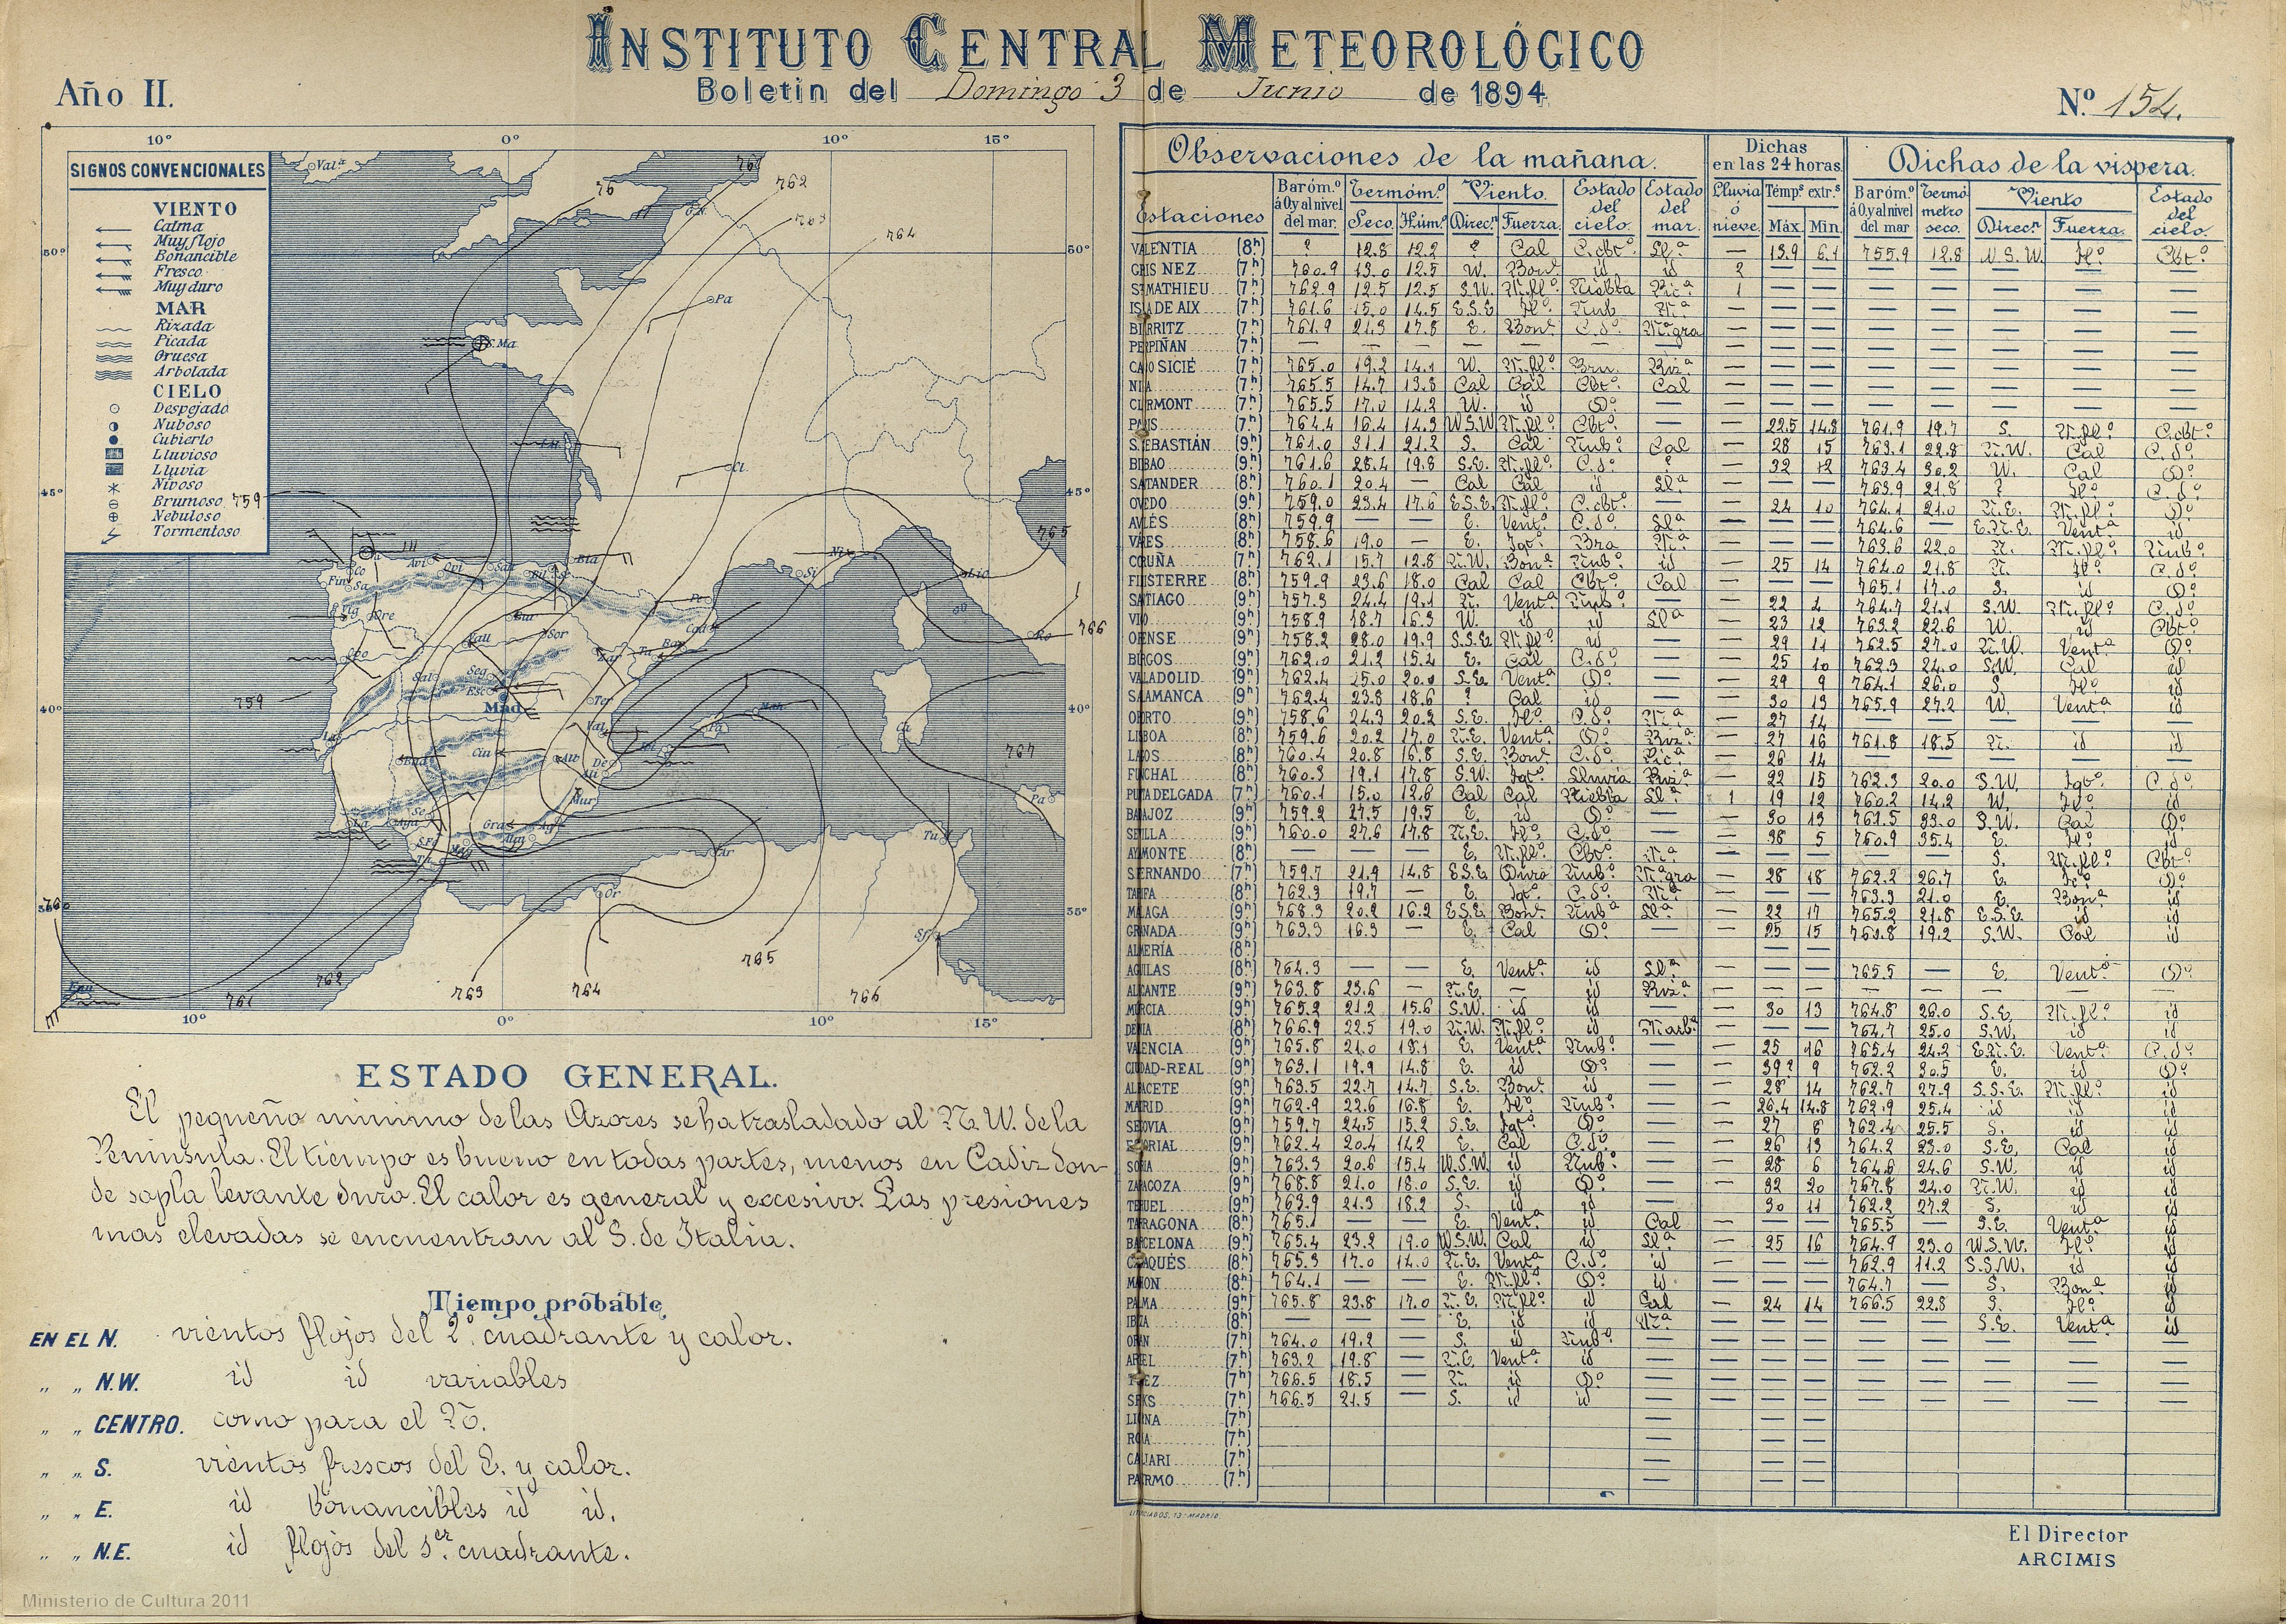 INSTITUTO CENTRAL METEOROLÓGICO
Año II.
Boletin del Domingo 3 de Junio de 1894
Nº 154.
10° 0° 10° 15°
SIGNOS CONVENCIONALES
VIENTO
Calma
Muy flojo
Bonancible
Fresco
Muy duro
MAR
Rizada
Picada
Gruesa
Arbolada
CIELO
Despejado
Nuboso
Cubierto
Lluvioso
Lluvia
Nivoso
Brumoso
Nebuloso
Tormentoso
762
764
759
765
766
759
767
760
761
762
763
764
765
766
10° 0° 10° 15°
ESTADO GENERAL.
El pequeño minimo de las Azores se ha trasladado al N.W. de la
Peninsula. El tiempo es bueno en todas partes, menos en Cadiz don-
de sopla levante duro. El calor es general y excesivo. Las presiones
mas elevadas se encuentran al S. de Italia.
Tiempo probable
EN EL N. vientos flojos del 2º cuadrante y calor.
„ „ N.W. id id variables
„ „ CENTRO. como para el N.
„ „ S. vientos frescos del E. y calor.
„ „ E. id bonancibles id id.
„ „ N.E. id flojos del 1er cuadrante.
Observaciones de la mañana.
Dichas en las 24 horas
Dichas de la vispera.
Estaciones
Baróm.º á 0, y al nivel del mar.
Termóm.º
Seco Húm.º
Viento.
Direcn. Fuerza.
Estado del cielo.
Estado del mar.
Lluvia ó nieve.
Témps. extr.s
Máx. Min.
Baróm.º á 0, y al nivel del mar
Termómetro seco.
Viento
Direcn. Fuerza.
Estado del cielo.
VALENTIA (8h) ? 12.8 12.2 ? Cal C.cbtº Llª — 13.9 6.1 755.9 12.8 W.S.W. Flº Cbtº
GRIS NEZ (7h) 760.9 13.0 12.5 W. Bonc id id 2
ST MATHIEU (7h) 762.9 12.5 12.5 S.W. M.flº Niebla Picª 1
ISLA DE AIX (7h) 761.6 15.0 14.5 E.S.E. Flº Nub
BIARRITZ (7h) 761.9 21.3 17.8 E. Bonc C.dº
PERPIÑAN (7h)
CABO SICIÉ (7h) 765.0 19.2 14.1 W. M.flº Bru. Rizª
NIZA (7h) 765.5 14.7 13.8 Cal Cal Cbtº Cal
CLERMONT (7h) 765.5 17.0 14.2 W. id Dº
PARIS (7h) 764.4 16.4 14.3 W.S.W. M.flº Cbtº — 22.5 14.8 761.9 19.7 S. M.flº C.cbtº
S. SEBASTIÁN (9h) 761.0 31.1 21.2 S. Cal Nubº Cal — 28 15 763.1 22.8 N.W. Cal C.dº
BILBAO (9h) 761.6 28.4 19.8 S.E. M.flº C.dº ? — 32 12 763.4 30.2 W. Cal Dº
SANTANDER (8h) 760.1 20.4 — Cal Cal id Llª 763.9 21.8 ? Flº C.dº
OVIEDO (9h) 759.0 23.4 17.6 E.S.E. M.flº C.cbtº — 24 10 764.1 21.0 N.E. M.flº Dº
AVILÉS (8h) 759.9 — — E. Ventª C.dº Llª 764.6 — E.N.E. Ventª id
VARES (8h) 758.6 19.0 — E. Fgtº Bra 763.6 22.0 N. M.flº Nubº
CORUÑA (7h) 762.1 15.7 12.8 N.W. Bonc Nubº id — 25 14 764.0 21.8 N. Flº C.dº
FINISTERRE (8h) 759.9 23.6 18.0 Cal Cal Cbtº Cal 765.1 17.0 S. id Dº
SANTIAGO (9h) 757.3 24.4 19.1 N. Ventª Nubº — 22 764.7 21.1 S.W. M.flº C.dº
VIGO (9h) 758.9 18.7 16.3 W. id id Llª — 23 12 763.2 22.6 W. id Cbtº
ORENSE (9h) 758.2 28.0 19.9 S.S.E. M.flº id — 29 11 762.5 27.0 N.W. Ventª Dº
BURGOS (9h) 762.0 21.2 15.4 E. Cal C.dº — 25 10 762.3 24.0 S.W. Cal id
VALLADOLID (9h) 762.4 15.0 S.E. Ventª Dº — 29 9 764.1 26.0 S. Flº id
SALAMANCA (9h) 762.4 23.8 18.6 ? Cal id — 30 13 765.9 27.2 W. Ventª id
OPORTO (9h) 758.6 24.3 20.2 S.E. Flº C.dº — 27 14
LISBOA (8h) 759.6 20.2 17.0 N.E. Ventª Dº Rizª — 27 16 761.8 18.5 N. id id
LAGOS (8h) 760.4 20.8 16.8 S.E. Bonc C.dº Picª — 26 14
FUNCHAL (8h) 760.3 19.1 17.8 S.W. Fgtº Lluvia Rizª — 22 15 762.3 20.0 S.W. Fgtº C.dº
PUNTA DELGADA (7h) 760.1 15.0 12.6 Cal Cal Niebla Llª 1 19 12 760.2 14.2 W. Flº id
BADAJOZ (9h) 759.2 27.5 19.5 E. id Dº — 30 13 761.5 33.0 S.W. Cal Dº
SEVILLA (9h) 760.0 27.6 17.8 N.E. Flº C.dº — 38 5 760.9 35.4 E. Flº id
AYAMONTE (8h) — — — E. M.flº Cbtº S. M.flº Cbtº
S. FERNANDO (7h) 759.7 21.9 14.8 E.S.E. Duro Nubº — 28 18 762.2 26.7 E. Dº
TARIFA (8h) 762.3 19.7 — E. Fgtº C.dº 763.3 21.0 E. Bonª id
MÁLAGA (9h) 768.3 20.2 16.2 E.S.E. Bonc Nubª Llª — 22 17 765.2 21.8 E.S.E. id id
GRANADA (9h) 763.3 16.3 — E. Cal Dº — 25 15 760.8 19.2 S.W. Cal id
ALMERÍA (8h)
AGUILAS (8h) 764.3 — — E. Ventª id Llª 765.5 — E. Ventª Dº
ALICANTE (9h) 763.8 23.6 — N.E. — id Rizª
MURCIA (9h) 765.2 21.2 15.6 S.W. id id — 30 13 764.8 26.0 S.E. M.flº id
DENIA (8h) 766.9 22.5 19.0 N.W. M.flº id 764.7 25.0 S.W. id id
VALENCIA (9h) 765.8 21.0 18.1 E. Ventª Nubº — 25 16 765.4 24.2 E.N.E. Ventª C.dº
CIUDAD-REAL (9h) 763.1 19.9 14.8 E. id Dº — 39? 9 762.2 30.5 E. id Dº
ALBACETE (9h) 763.5 22.7 14.7 S.E. Bonc id — 28 14 762.7 27.9 S.S.E. M.flº id
MADRID (9h) 762.9 22.6 16.8 E. Flº Nubº — 26.4 14.8 762.9 25.4 id id id
SEGOVIA (9h) 759.7 24.5 15.2 S.E. Fgtº Dº — 27 6 762.4 25.5 S. id id
ESCORIAL (9h) 762.4 20.4 142 E. Cal C.dº — 26 13 764.2 23.0 S.E. Cal id
SORIA (9h) 763.3 20.6 15.4 W.S.W. id Nubº — 28 6 764.8 24.6 S.W. id id
ZARAGOZA (9h) 768.8 21.0 18.0 S.E. id Dº — 32 20 767.8 24.0 N.W. id id
TERUEL (9h) 763.9 21.3 18.2 S. id id — 30 11 762.2 27.2 S. id id
TARRAGONA (8h) 765.1 — — E. Ventª id Cal 765.5 — S.E. Ventª id
BARCELONA (9h) 765.4 23.2 19.0 W.S.W. Cal id Llª — 25 16 764.9 23.0 W.S.W. Flº id
CADAQUÉS (8h) 765.3 17.0 14.0 N.E. Ventª C.dº id 762.9 11.2 S.S.W. id id
MAHON (8h) 764.1 — — E. M.flº Dº id 764.7 — S. Bonc id
PALMA (9h) 765.8 23.8 17.0 N.E. M.flº id Cal — 24 14 766.5 22.8 S. Flº id
IBIZA (8h) — — — E. id id S.E. Ventª id
ORAN (7h) 764.0 19.2 — S. id Nubº
ARGEL (7h) 763.2 19.8 — N.E. Ventª id
TUNEZ (7h) 766.5 18.5 — N. id Dº
SFAKS (7h) 766.5 21.5 — S. id id
LIORNA (7h)
ROMA (7h)
CAGLIARI (7h)
PALERMO (7h)
El Director
ARCIMIS
Ministerio de Cultura 2011